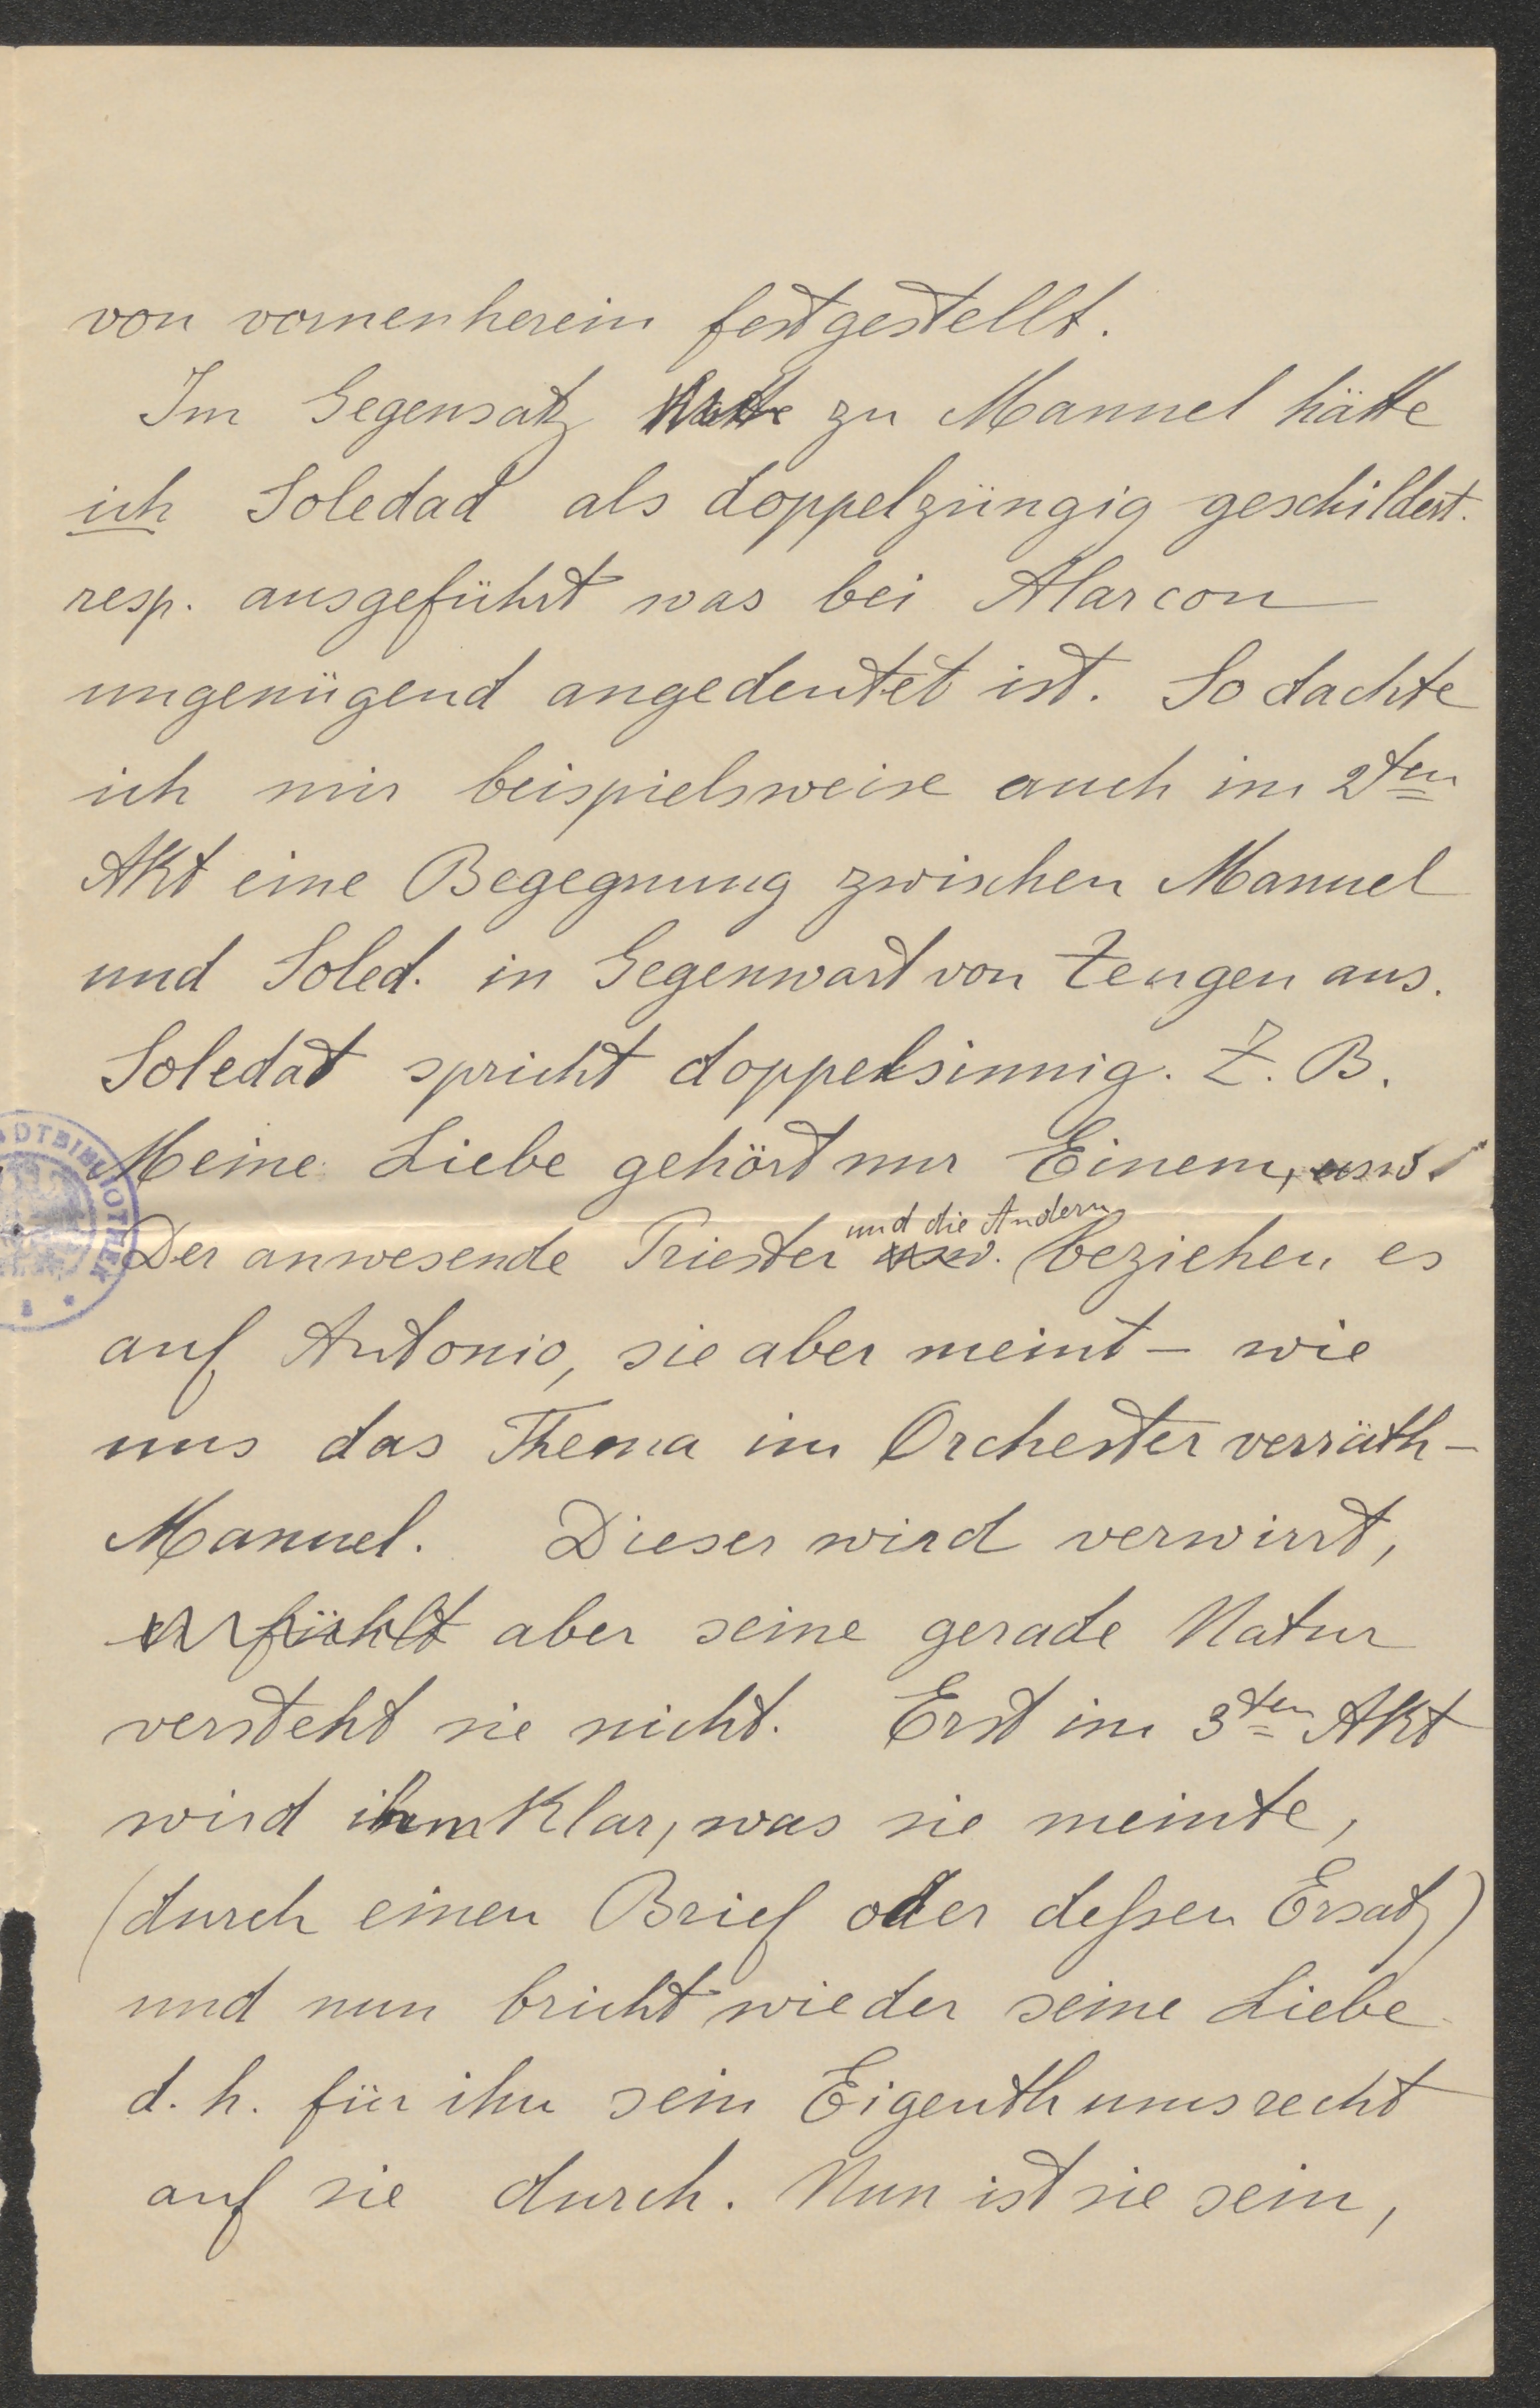 von vornenherein festgestellt.
Im Gegensatz zu Manuel hätte
ich Soledad als doppelzüngig geschildert.
resp. ausgeführt was bei Alarcon
ungenügend angedeutet ist. So dachte
ich mir beispielsweise auch im 2ten
Akt eine Begegnung zwischen Manuel
und Soled. in Gegenwart von Zeugen aus.
Soledad spricht doppelsinnig. Z. B.
Meine Liebe gehört nur Einem, usw.
und die Andern
Der anwesende Priester usw. beziehen es
auf Antonio, sie aber meint – wie
uns das Thema im Orchester verräth –
Manuel. Dieser wird verwirrt,
er fühlt aber seine gerade Natur
versteht sie nicht. Erst im 3ten Akt
wird ihm klar, was sie meinte,
(durch einen Brief oder deßen Ersatz)
und nun bricht wieder seine Liebe
d. h. für ihn sein Eigenthumsrecht
auf sie durch. Nun ist sie sein,